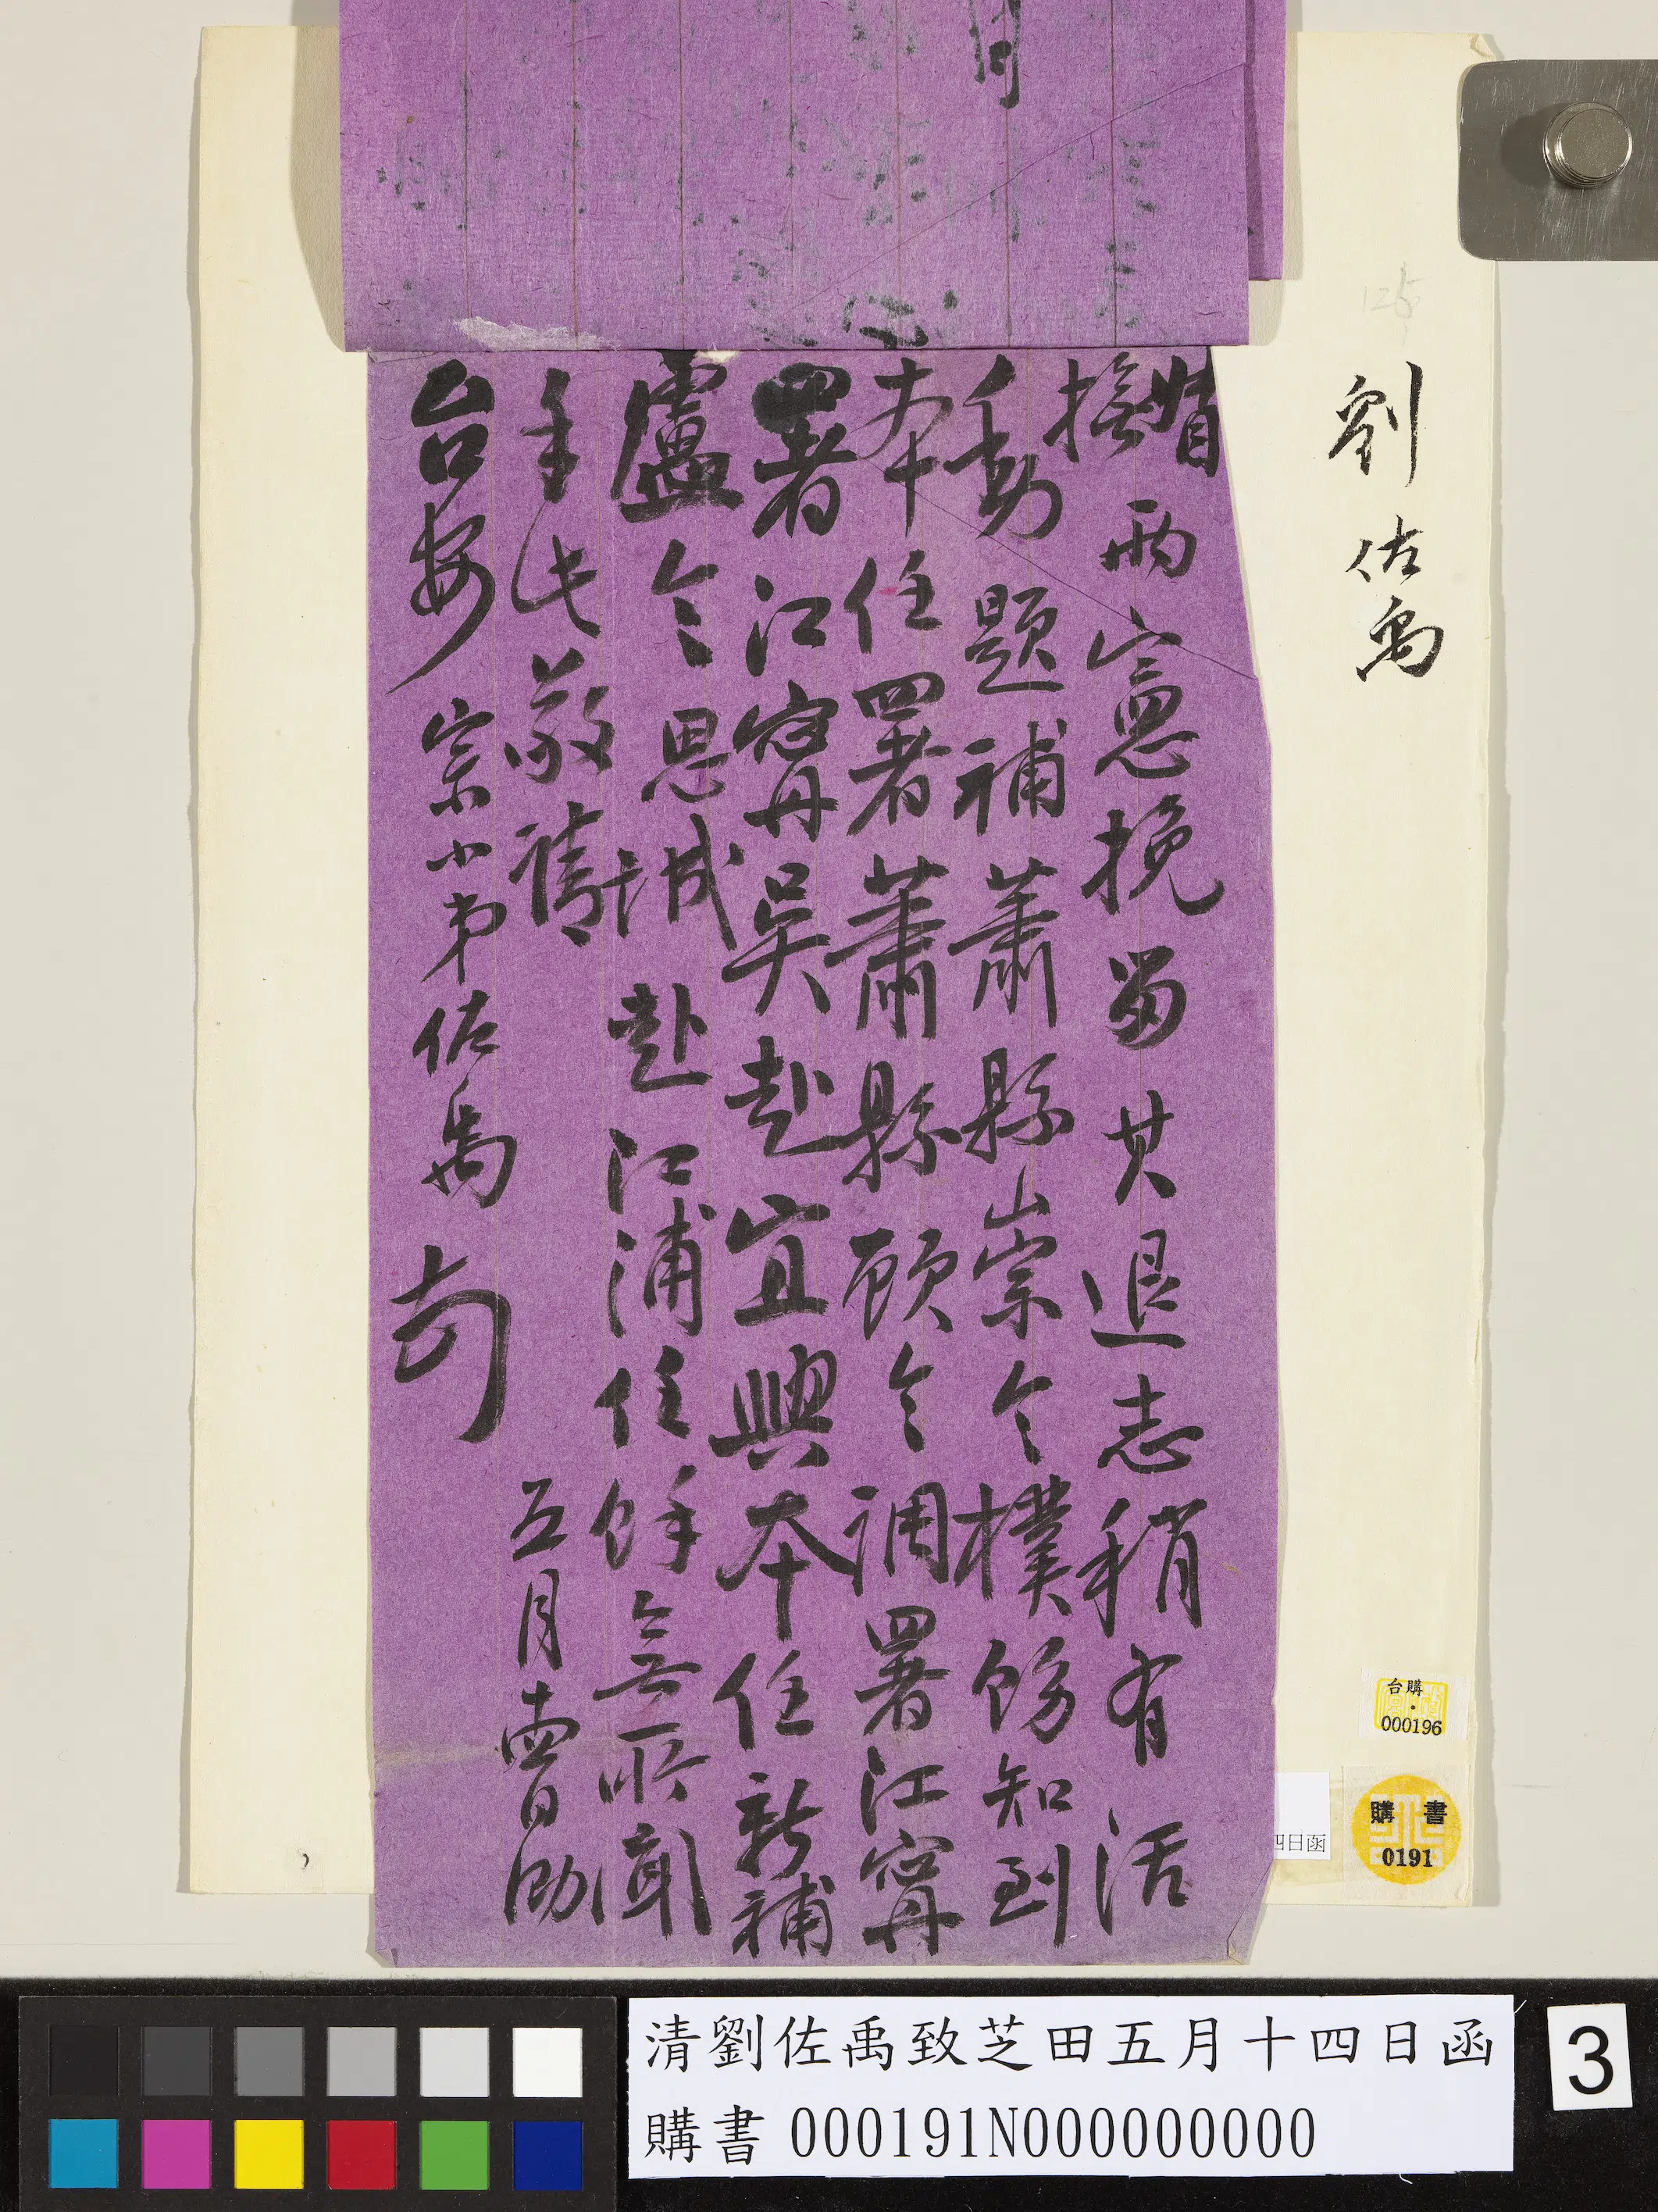 劉佐禹
撫兩憲挽留其退志稍有活
動題補蕭縣崇令樸飭知到
本任署蕭縣顧令調署江寧
署江寧吳赴宜興本任新補
盧令思誠赴江浦任餘無所聞
手此敬請
台安 宗小弟佐禹
五月十四日泐
台購
000196
購書
0191
四日函
清劉佐禹致芝田五月十四日函
購書 000191N000000000
3